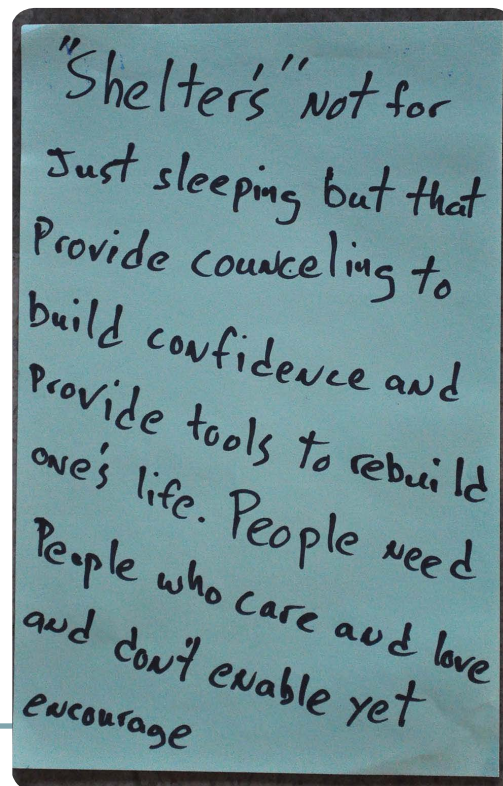 "Shelter's" Not for
Just sleeping but that
Provide counceling to
build confidence and
Provide tools to rebuild
one's life. People need
People who care and love
and don't enable yet
encourage